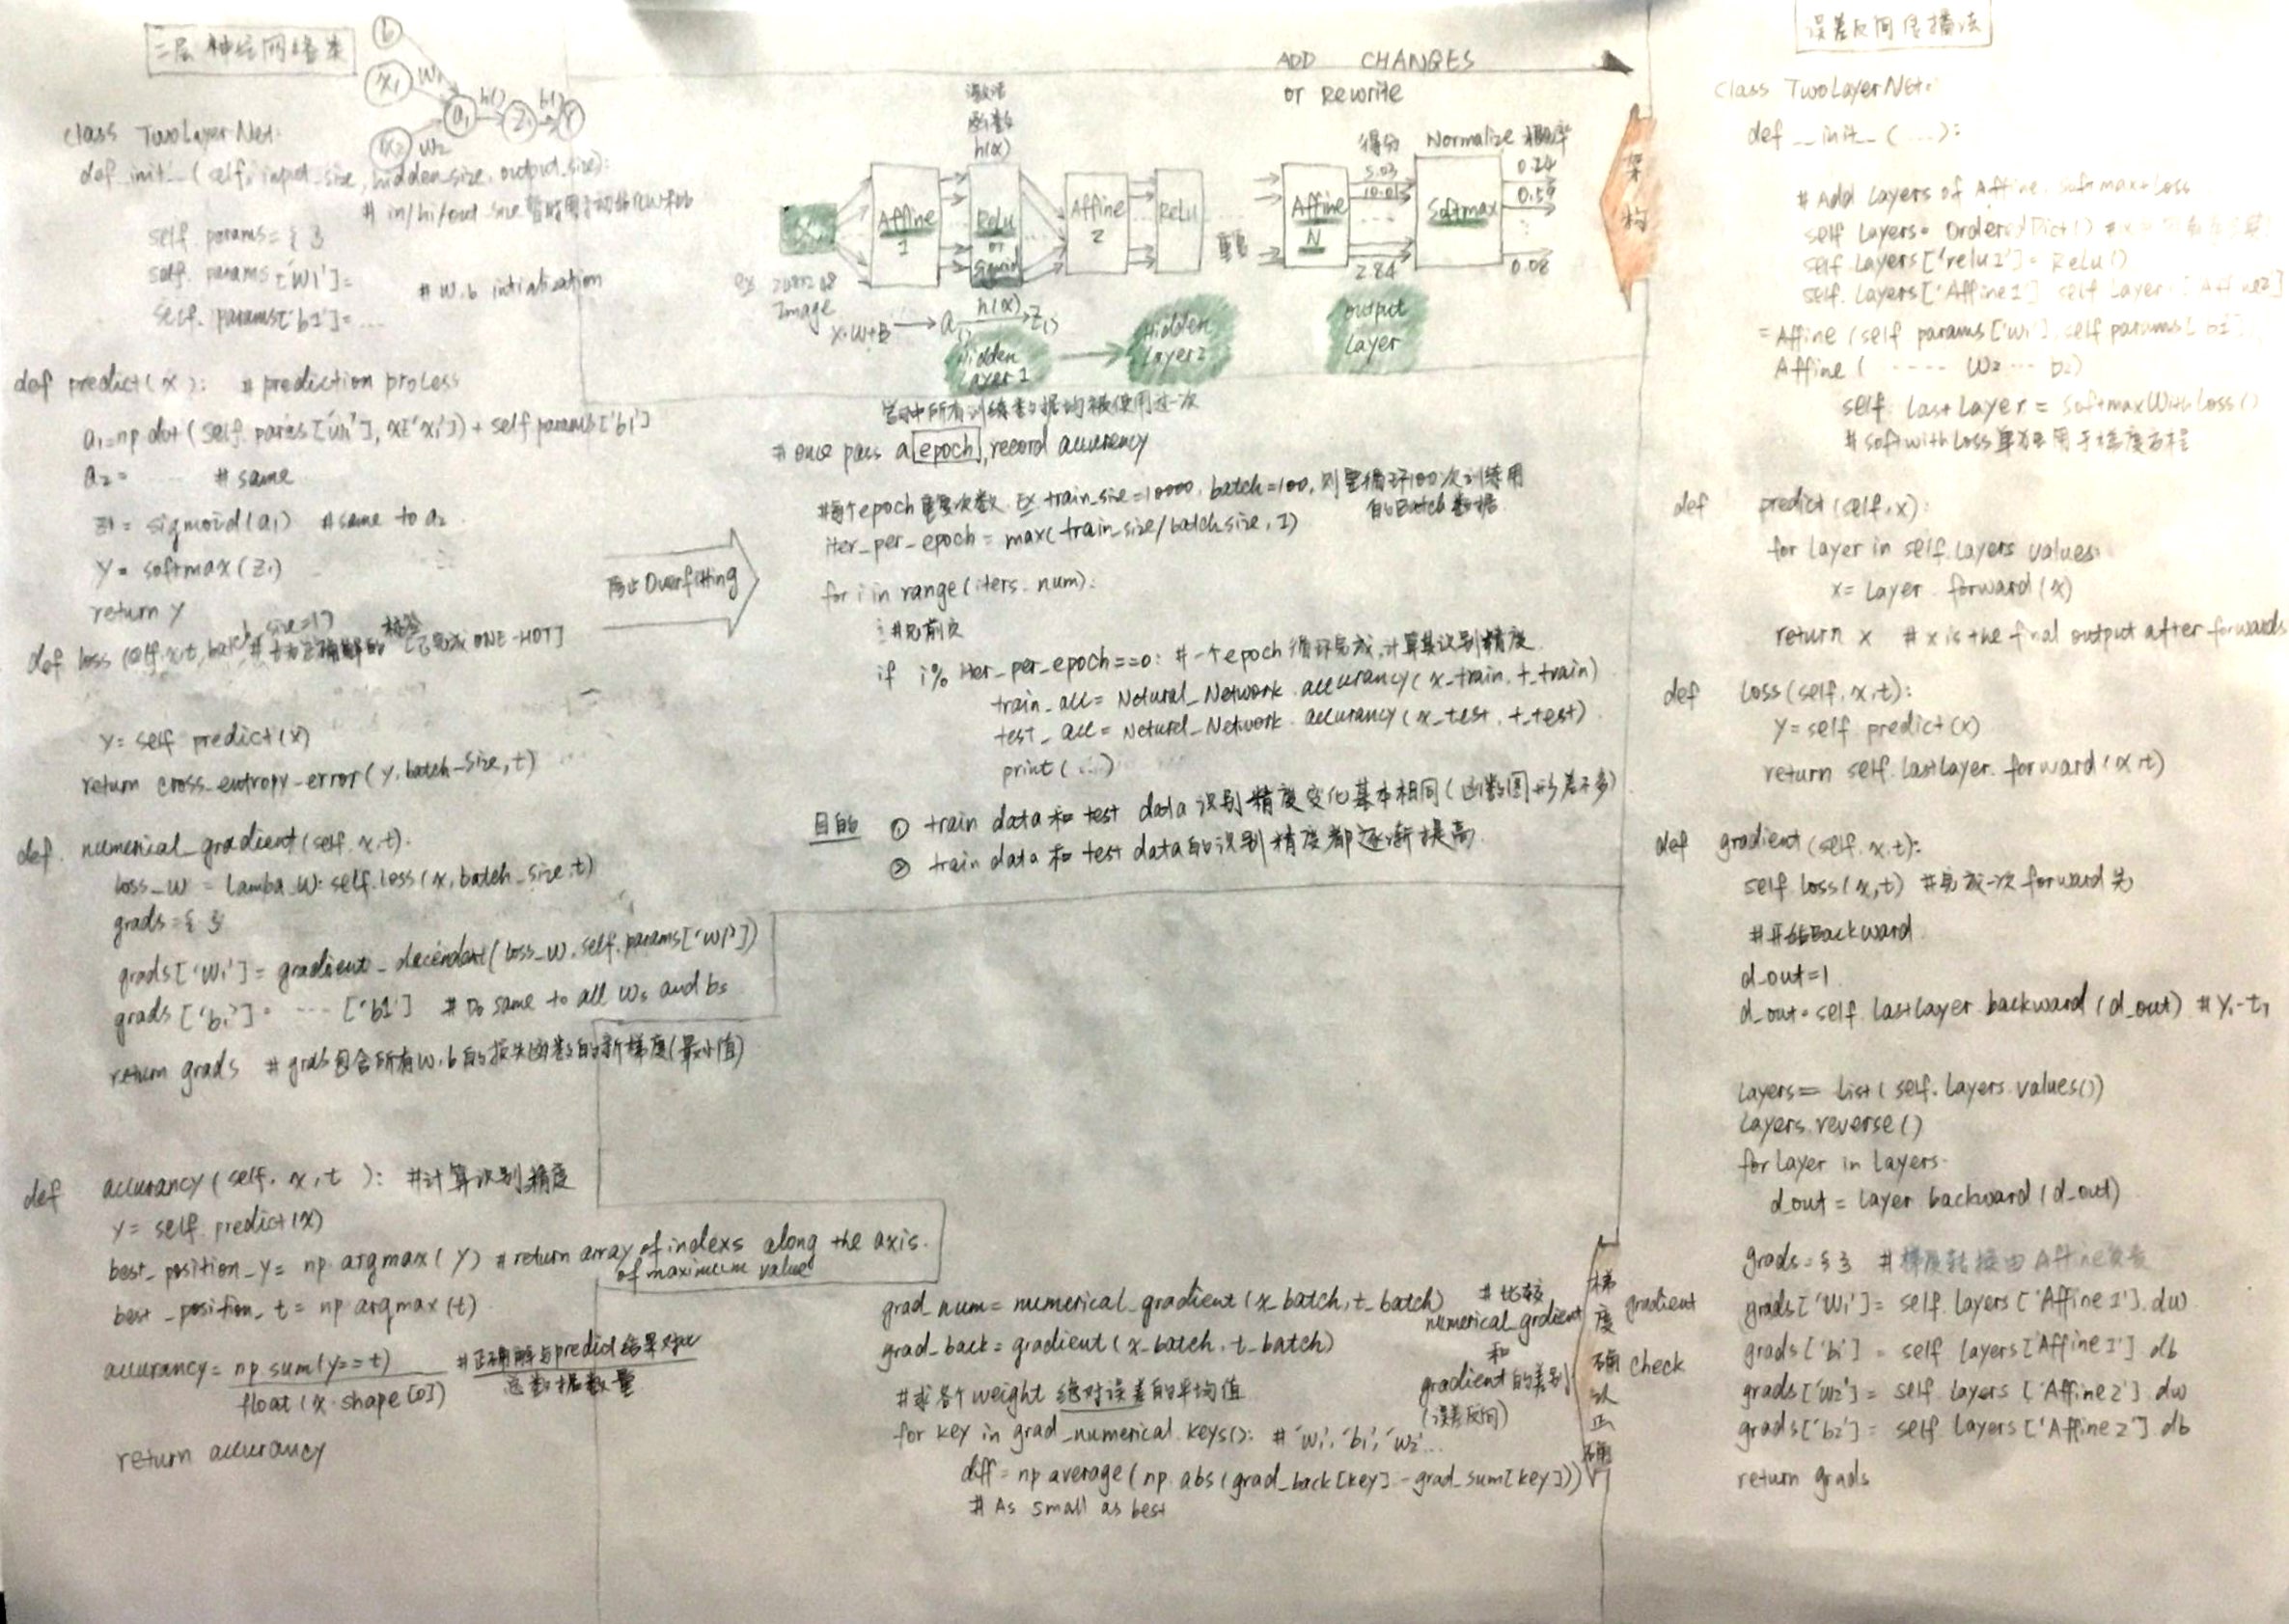 二层神经网络类
b
x1 w1
a1 h() z1 h() Y
x2 w2
class TwoLayerNet:
def _init_(self, input_size, hidden_size, output_size):
# in/hi/out_size
self. params={ }
self. params['W1']=
# w.b intialization
self. params['b1']=...
def predict(x): # prediction process
a1=np dot(self. params['w1'], x['x1'])+self params['b1']
a2= # same
z1= sigmoid(a1) #same to a2
Y= softmax(z1)
return Y
size=1]
def loss (self.x.t, batch ONE-HOT]
Y= self predict(x)
return cross_entropy_error(y, batch_size, t)
def. numerical_gradient(self. x,t).
loss_w = lamba w: self.loss(x, batch_size,t)
grads={ }
grads['w1']= gradient_decendent(loss_w.self.params['w1'])
grads['b1']= ... ['b1'] # Do same to all ws and bs
return grads # grads包含所有w.b的损失函数的新梯度(最小值)
def accurancy(self. x,t ): #计算识别精度
Y= self predict(x)
best_position_Y= np argmax(Y) #return array of indexs along the axis.
of maximum value
best_position_t = np argmax(t)
accurancy= np sum(y==t) #正确解与predict结果对比
float(x.shape[0]) 总数据数量
return accurancy
防止Overfitting
ADD CHANGES
or Rewrite
激活
函数
h(x)
得分 Normalize 概率
X Affine 1 Relu or sigmoid Affine 2 Relu 重复 Affine N Softmax
5.03
10.01
....
2.84
0.24
0.59
0.08
ex
Image
X·W+B → a h(x) → Z
Hidden Layer 1
Hidden Layer2
output Layer
架构
当中所有训练数据均被使用过一次
# once pass a epoch, record accurency
#每个epoch重复次数 Ex train_size=10000, batch=100, 则要循环100次训练用
的Batch数据
iter_per_epoch = max(train_size/batch_size, 1)
for i in range(iters_num):
#见前页
if i% iter_per_epoch==0: #一个epoch循环完成,计算其识别精度
train_acc= Netural_Network.accurancy(x_train, t_train)
test_acc= Netural_Network.accurancy(x_test, t_test)
print(...)
目的 ① train data和 test data识别精度变化基本相同(函数图形差不多)
② train data和 test data的识别精度都逐渐提高
grad_num= numerical_gradient(x_batch, t_batch)
grad_back= gradient(x_batch, t_batch)
#求各个weight 绝对误差的平均值
for key in grad_numerical.keys(): # 'w1','b1','w2'...
diff= np average(np. abs(grad_back[key] - grad_sum[key]))
# As small as best
#比较
numerical_grdient
和
gradient的差别
(误差反向)
梯度确认正确
gradient
check
误差反向传播法
class TwoLayerNet:
def __init__(...):
# Add Layers of Affine, softmax+Loss
self Layers= OrderedDict()
self. Layers['relu1']= Relu()
self. Layers['Affine1'] self Layer ['Affine2']
=Affine (self params['w1'] self params['b1']
Affine( ---- w2 ... b2)
self. LastLayer = SoftmaxWithLoss()
# softwithLoss
def predict(self.x):
for layer in self.layers values:
x= layer. forward(x)
return x # x is the final output after forwards
def loss(self.x,t):
Y= self predict(x)
return self.lastlayer. forward(x,t)
def gradient(self.x.t):
self loss(x,t) #完成一次forward先
#开始Backward
d_out=1
d_out= self.lastlayer backward(d_out) # Yi-ti
layers= list(self.layers.values())
layers.reverse()
for layer in layers.
d_out= layer backward(d_out)
grads={}
grads['W1']= self. layers['Affine1'].dw
grads['b1']= self layers['Affine1'].db
grads['w2']= self layers ['Affine2'].dw
grads['b2']= self layers['Affine2'].db
return grads